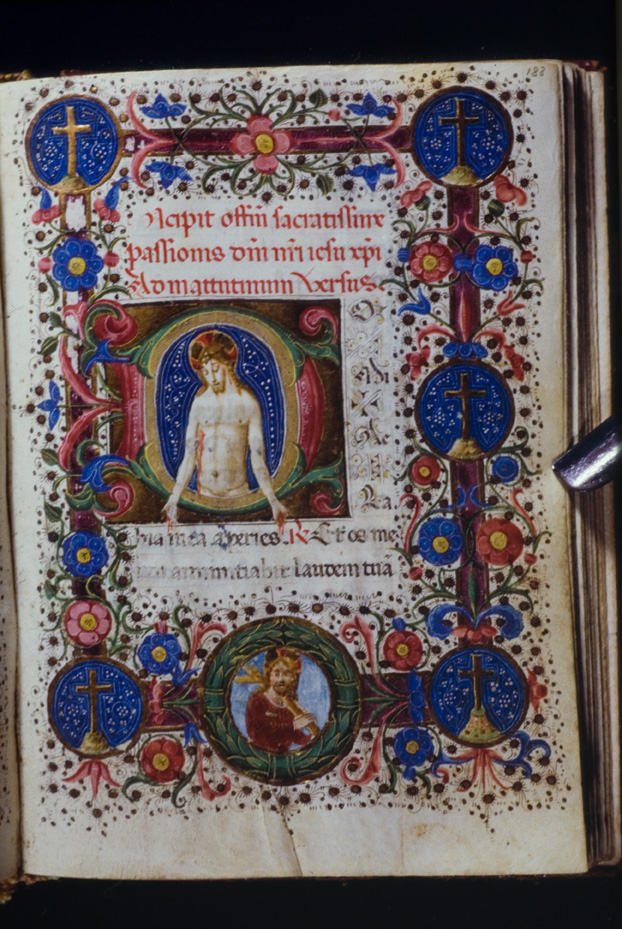 ncipit offm̄ sacratissime
passionis dn̄i nr̄i iesu xp̄i
Ad matutinum Versus.
bia mea aperies. R Et os me
um annuntiabit laudem tuā